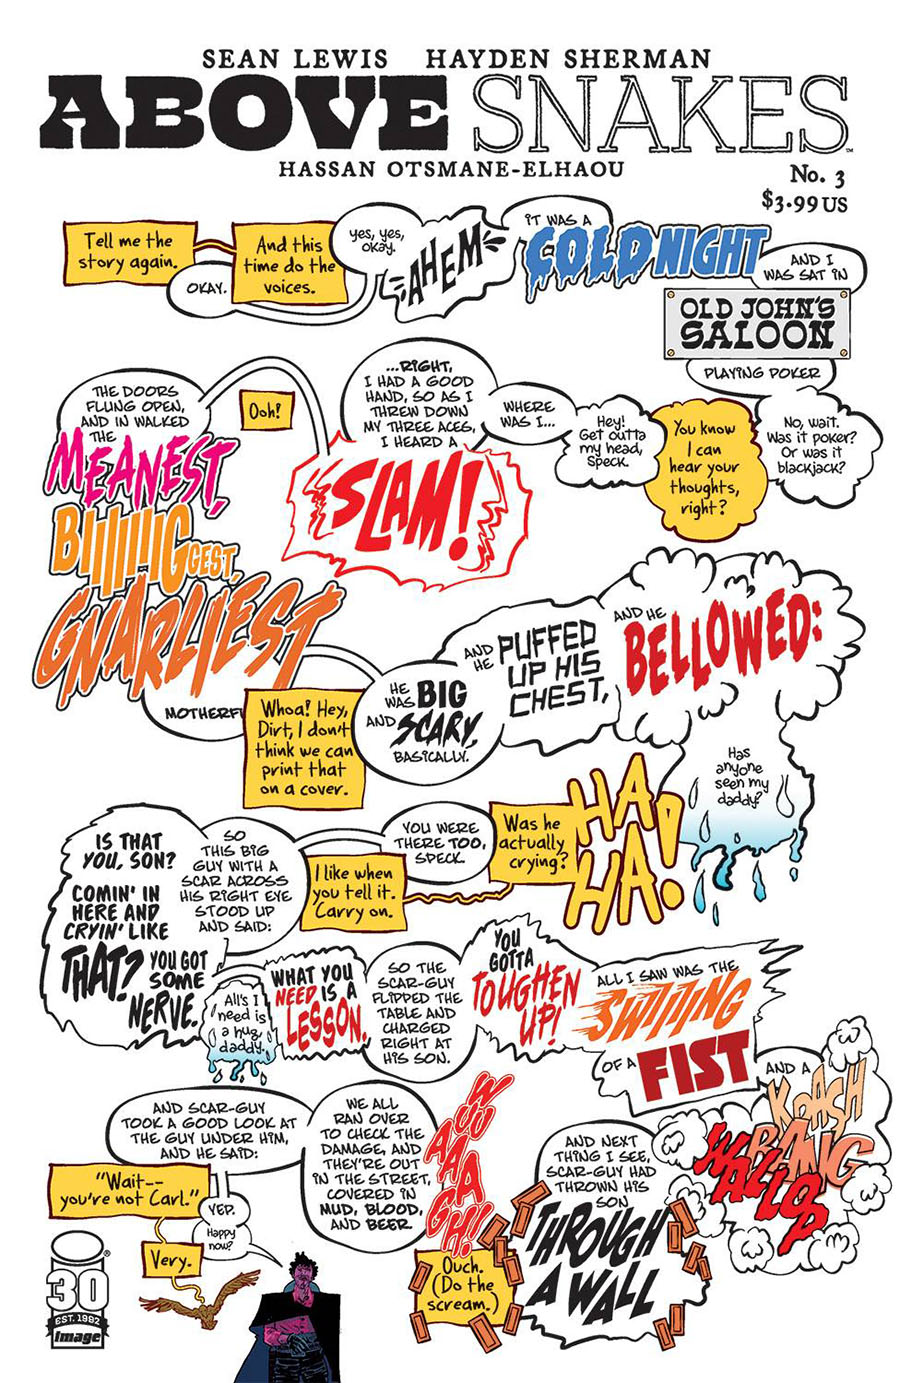 SEAN LEWIS HAYDEN SHERMAN
ABOVE SNAKES™
HASSAN OTSMANE-ELHAOU
No. 3
$3.99 US
Tell me the
story again.
OKAY.
And this
time do the
voices.
yes, yes,
okay.
AHEM
IT WAS A
COLD NIGHT
AND I
WAS SAT IN
OLD JOHN'S
SALOON
PLAYING POKER
No, wait.
Was it poker?
Or was it
blackjack?
You know
I can
hear your
thoughts,
right?
Hey!
Get outta
my head,
Speck.
WHERE
WAS I...
...RIGHT,
I HAD A GOOD
HAND, SO AS I
THREW DOWN
MY THREE ACES,
I HEARD A
SLAM!
Ooh!
THE DOORS
FLUNG OPEN,
AND IN WALKED
THE
MEANEST,
BIIIIIIIGGEST,
GNARLIEST
MOTHERFU
Whoa! Hey,
Dirt, I don't
think we can
print that
on a cover.
HE
WAS BIG
AND SCARY,
BASICALLY.
AND
HE PUFFED
UP HIS
CHEST,
AND HE
BELLOWED:
Has
anyone
seen my
daddy?
HA
HA!
Was he
actually
crying?
YOU WERE
THERE TOO,
SPECK.
I like when
you tell it.
Carry on.
SO
THIS BIG
GUY WITH A
SCAR ACROSS
HIS RIGHT EYE
STOOD UP
AND SAID:
IS THAT
YOU, SON?
COMIN' IN
HERE AND
CRYIN' LIKE
THAT? YOU GOT
SOME
NERVE.
All's I
need is
a hug,
daddy.
WHAT YOU
NEED IS A
LESSON.
SO THE
SCAR-GUY
FLIPPED THE
TABLE AND
CHARGED
RIGHT AT
HIS SON.
YOU
GOTTA
TOUGHEN
UP!
ALL I SAW WAS THE
SWIIIING
OF A FIST
AND A
KRASH
BANG
WALLOP
AND NEXT
THING I SEE,
SCAR-GUY HAD
THROWN HIS
SON
THROUGH
A WALL
Ouch.
(Do the
scream.)
WUU
AAAAGH!!
WE ALL
RAN OVER
TO CHECK THE
DAMAGE, AND
THEY'RE OUT
IN THE STREET,
COVERED IN
MUD, BLOOD,
AND BEER.
AND SCAR-GUY
TOOK A GOOD LOOK AT
THE GUY UNDER HIM,
AND HE SAID:
"Wait--
you're not Carl."
YEP.
Happy
now?
Very.
30
EST. 1992
image